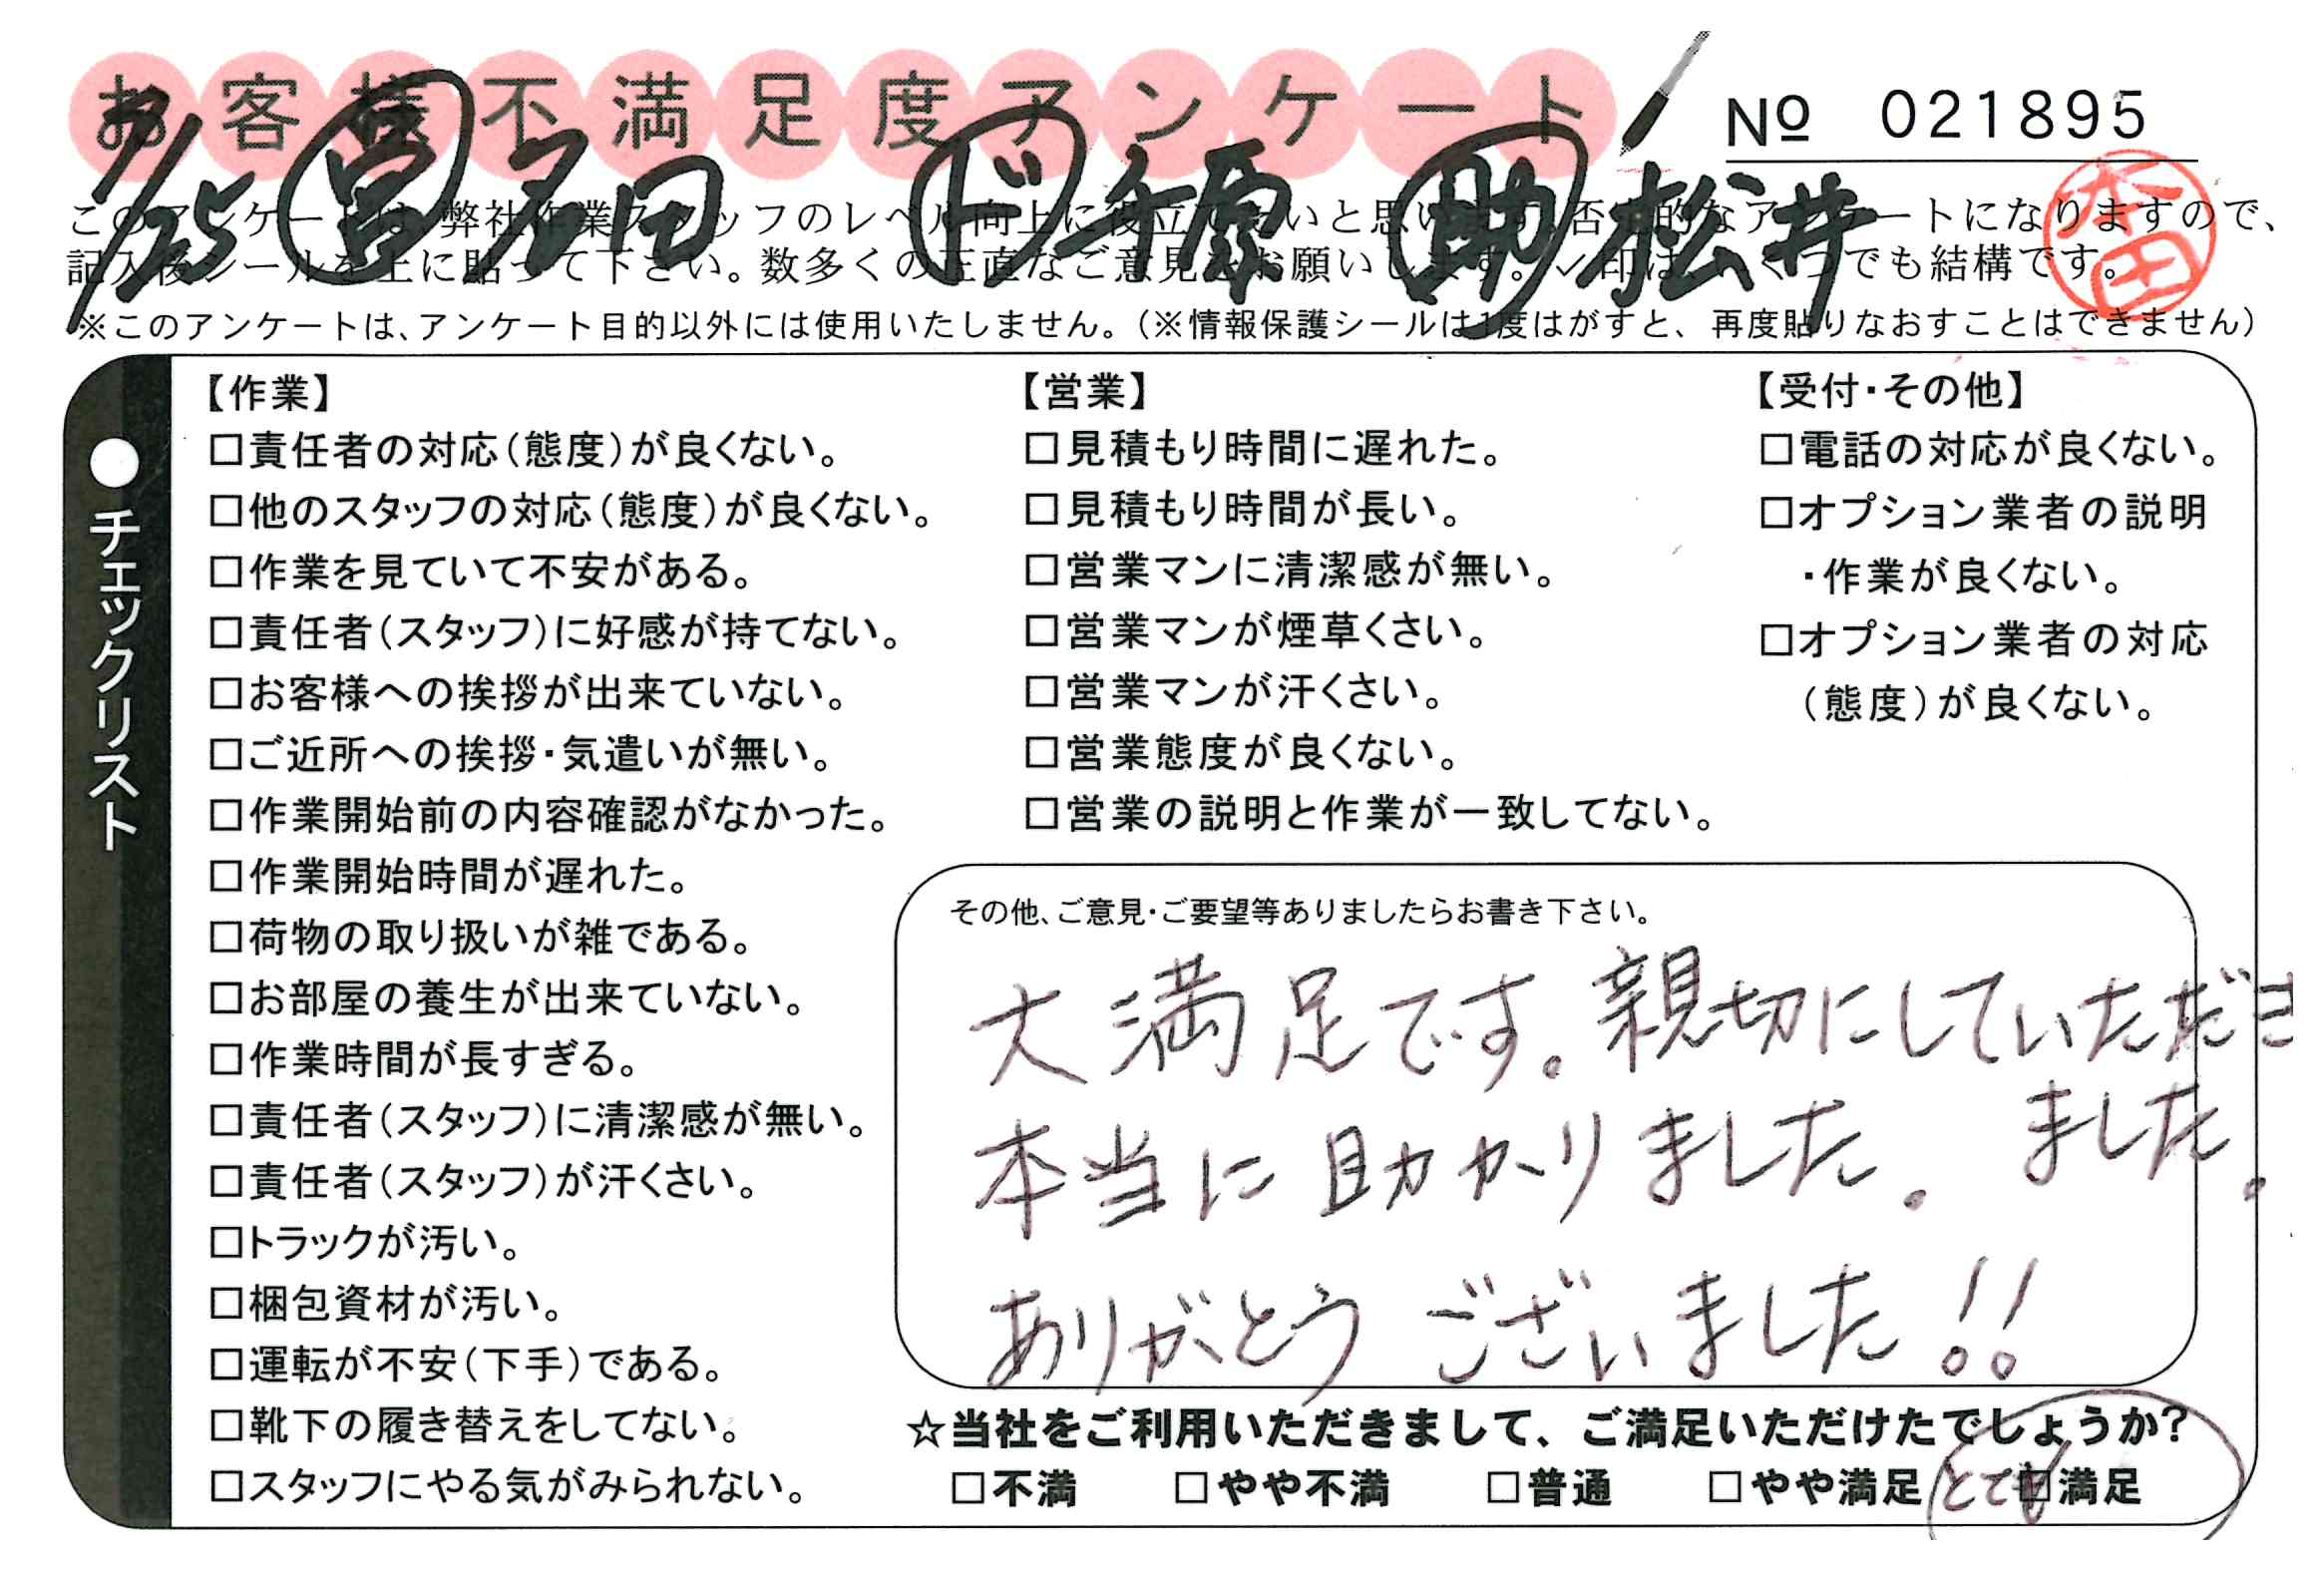 お客様不満足度アンケート
№ 021895
7/25 営 石田 ド 千原 助 松井
本田
このアンケートは、弊社作業スタッフのレベル向上に役立てたいと思います。否定的なアンケートになりますので、
記入後シールを上に貼って下さい。数多くの正直なご意見をお願いします。✓印はいくつでも結構です。
※このアンケートは、アンケート目的以外には使用いたしません。（※情報保護シールは1度はがすと、再度貼りなおすことはできません）
●チェックリスト
【作業】
□責任者の対応（態度）が良くない。
□他のスタッフの対応（態度）が良くない。
□作業を見ていて不安がある。
□責任者（スタッフ）に好感が持てない。
□お客様への挨拶が出来ていない。
□ご近所への挨拶・気遣いが無い。
□作業開始前の内容確認がなかった。
□作業開始時間が遅れた。
□荷物の取り扱いが雑である。
□お部屋の養生が出来ていない。
□作業時間が長すぎる。
□責任者（スタッフ）に清潔感が無い。
□責任者（スタッフ）が汗くさい。
□トラックが汚い。
□梱包資材が汚い。
□運転が不安（下手）である。
□靴下の履き替えをしてない。
□スタッフにやる気がみられない。
【営業】
□見積もり時間に遅れた。
□見積もり時間が長い。
□営業マンに清潔感が無い。
□営業マンが煙草くさい。
□営業マンが汗くさい。
□営業態度が良くない。
□営業の説明と作業が一致してない。
【受付・その他】
□電話の対応が良くない。
□オプション業者の説明
・作業が良くない。
□オプション業者の対応
（態度）が良くない。
その他、ご意見・ご要望等ありましたらお書き下さい。
大満足です。親切にしていただき
ました。
本当に助かりました。
ありがとうございました!!
☆当社をご利用いただきまして、ご満足いただけたでしょうか？
□不満 □やや不満 □普通 □やや満足 とても □満足